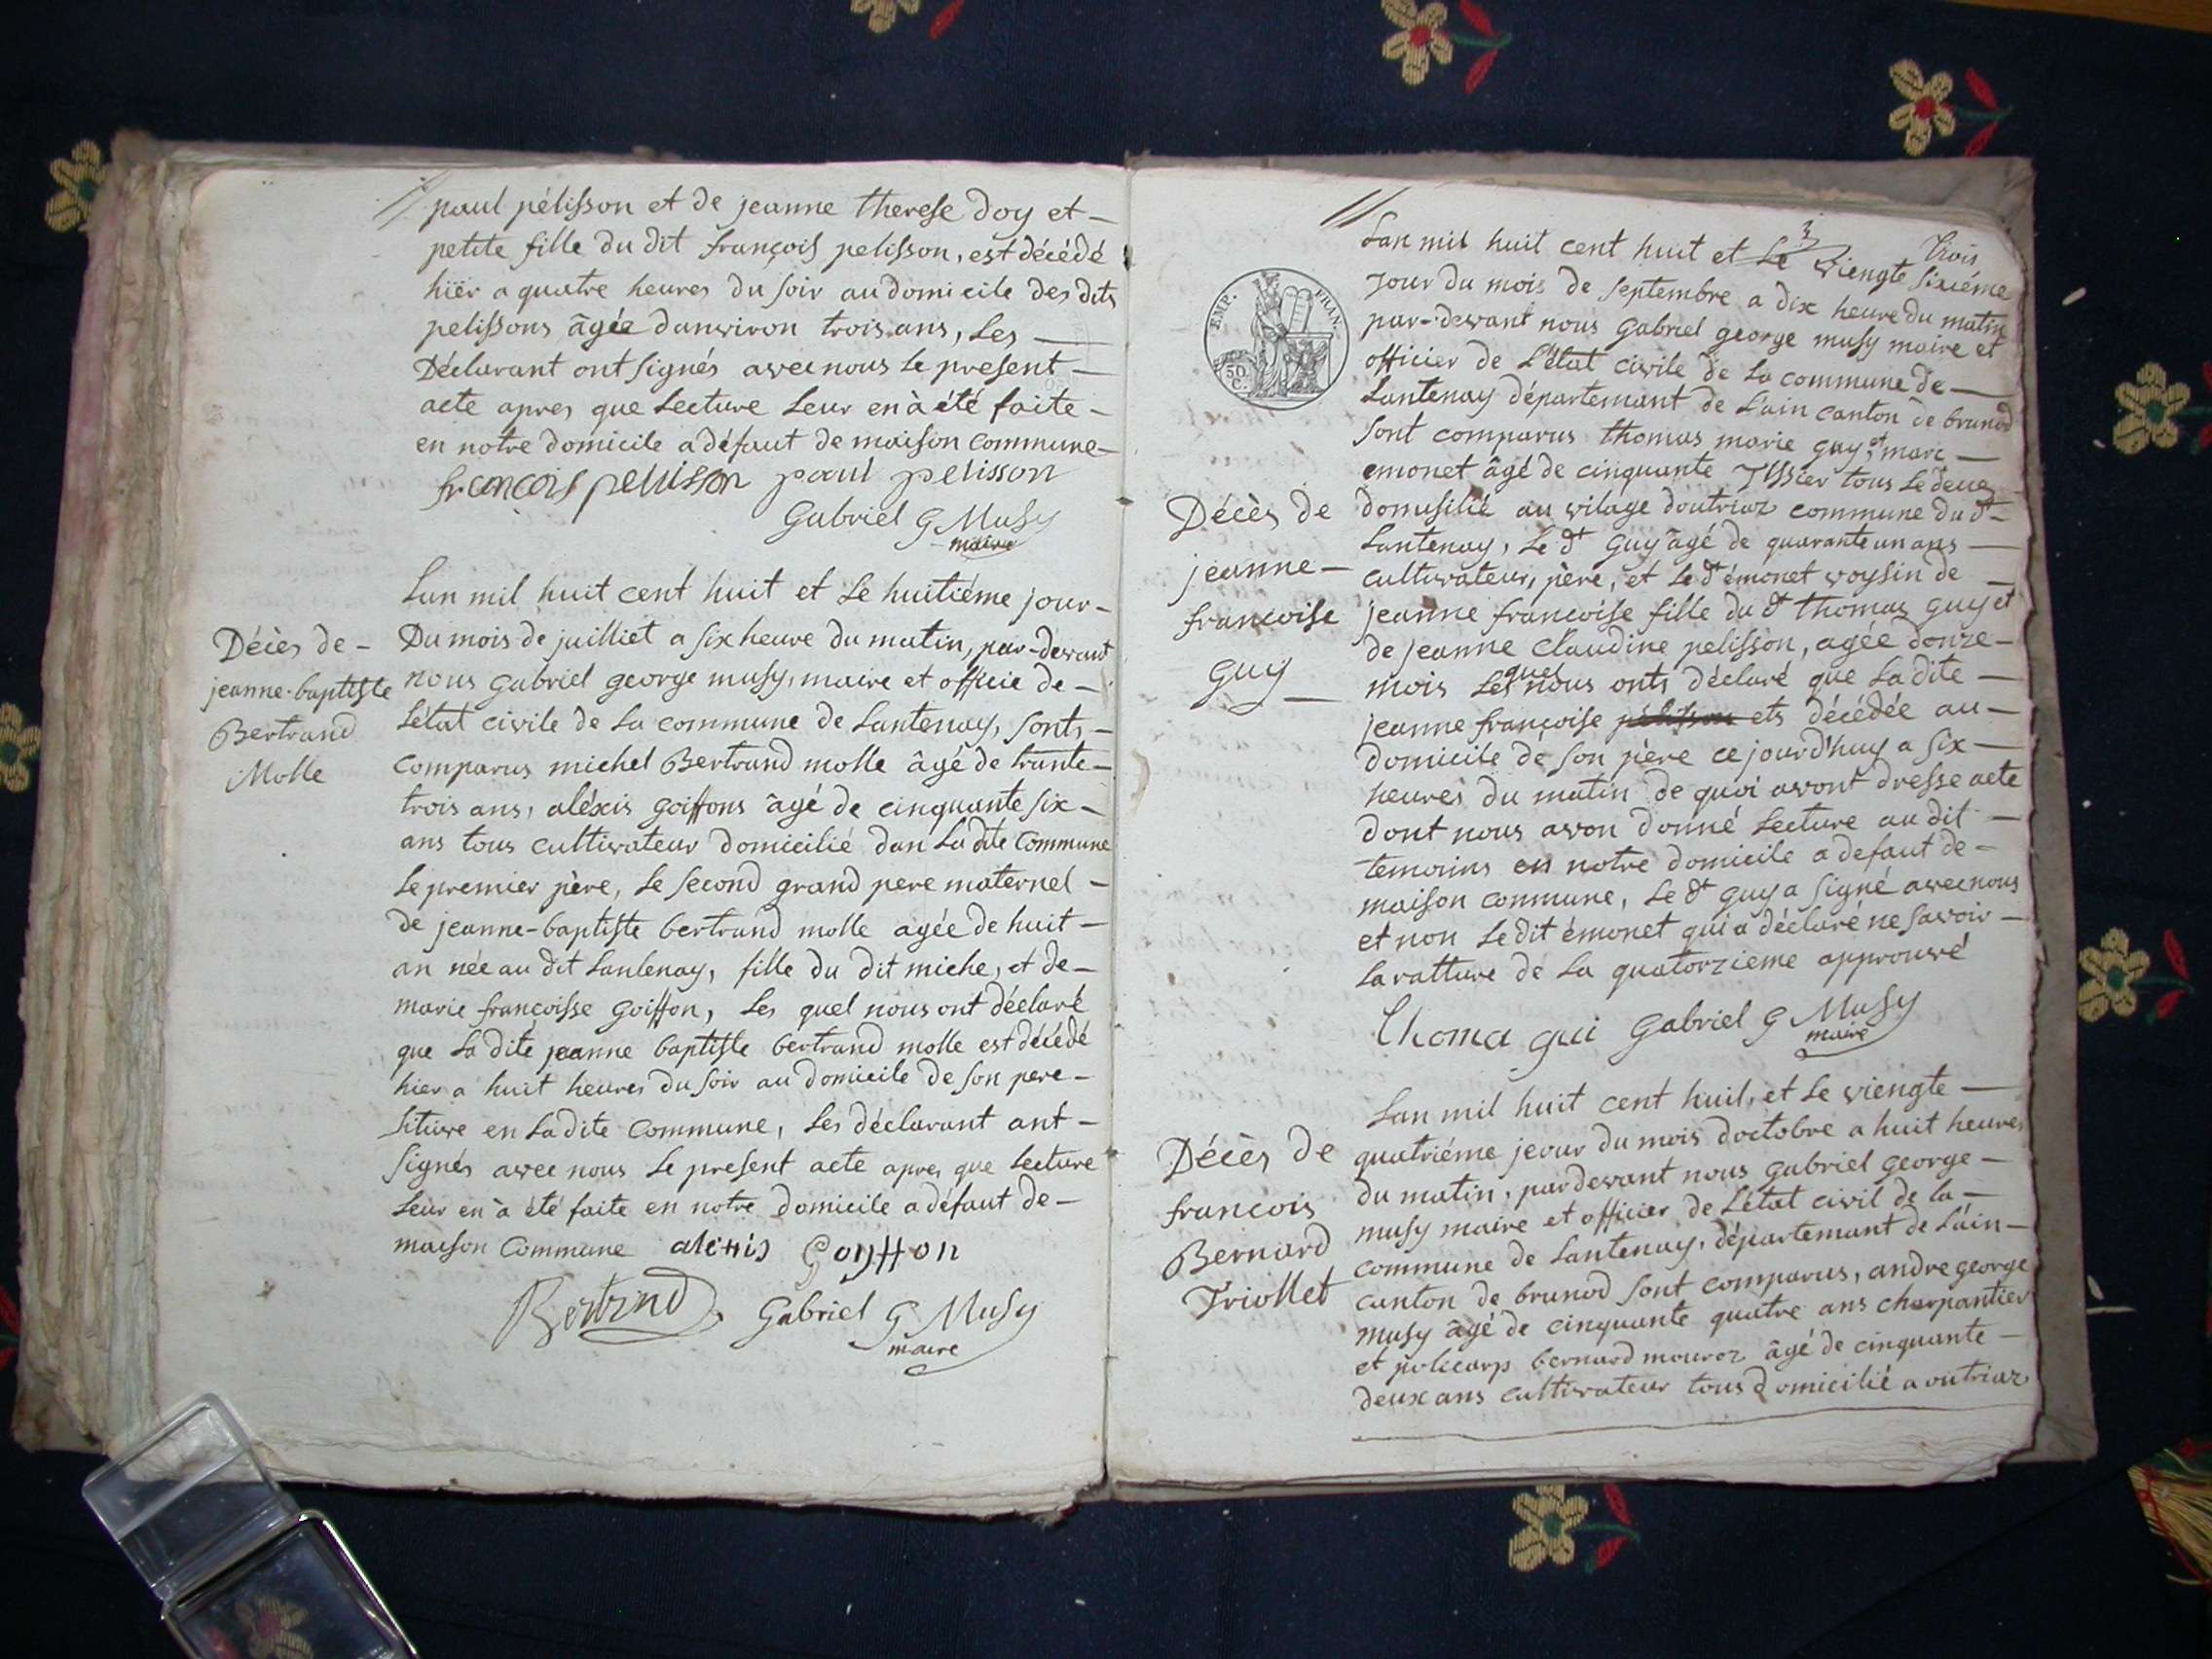 paul pélisson et de jeanne therese doy et
petite fille du dit françois pelisson, est décédé
hiër a quatre heures du soir au domicile des dits
pelissons âgée danviron trois ans, Les
Déclarant ont signés avec nous le present
acte apres que Lecture Leur en à été faite
en notre domicile a défaut de maison commune
francois pelisson paul pelisson
Gabriel G Musy
maire
Décès de
jeanne-baptiste
Bertrand
Molle
Lan mil huit cent huit et Le huitiéme jour
Du mois de juilliet a six heure du matin, par-devant
nous Gabriel george musy, maire et officie de
Létat civile de La commune de Lantenay, sonts
comparus michel Bertrand molle âgé de trante
trois ans, aléxis goiffons âgé de cinquante six
ans tous cultivateur domicilié dan La dite Commune
Le premier père, Le second grand pere maternel
de jeanne-baptiste bertrand molle agée de huit
an née au dit Lantenay, fille du dit miche, et de
marie françoisse goiffon, Les quel nous ont déclaré
que La dite jeanne baptiste bertrand molle est décédé
hier a huit heures du soir au domicile de son pere
situee en La dite commune, Les déclarant ont
signés avec nous Le present acte apres que Lecture
Leur en à été faite en notre domicile a défaut de
maison Commune alexis Goyffon
Bertrand Gabriel G Musy
maire
EMP. FRAN.
50
C.
Décès de
jeanne
francoise
Guy
3
trois
Lan mil huit cent huit et Le viengte sixiéme
Jour du mois de septembre a dix heure du matin
par-devant nous Gabriel george musy maire et
officier de L'état civile de La commune de
Lantenay département de L'ain canton de brunod
sont comparus thomas marie guy, et marc
emonet âgé de cinquante tous Le deux
domisilié au vilage doutriaz commune du dt
Lantenay, Le dt Guy âgé de quarante un ans
cultivateur, père, et Le dt émonet voysin de
jeanne francoise fille du dt thomas guy et
de jeanne Claudine pelisson, agée donze
mois Les quel nous onts déclaré que La dite
jeanne françoise pélisson ets décédée au
domicile de son père ce jourd'huy a six
heures du matin de quoi avont dresse acte
dont nous avon donné Lecture au dit
temoins en notre domicile a defaut de
maison commune, Le dt guy a signé avec nous
et non Le dit émonet qui a déclaré ne savoir
La ratture de La quatorzieme approuvé
thoma gui Gabriel G Musy
maire
Décès de
francois
Bernard
Triollet
Lan mil huit cent huit, et Le viengte
quatriéme jeour du mois doctobre a huit heures
du matin, pardevant nous gabriel george
musy maire et officier de Létat civil de la
commune de Lantenay, département de L'ain
canton de brunod sont comparus, andre george
musy âgé de cinquante quatre ans charpantier
et policarp bernard mouroz âgé de cinquante
deux ans cultivateur tous domicilié a outriaz